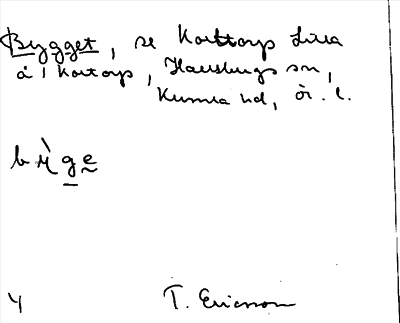 Bygget, se Korttorp Lilla
å 1 Kortorp, Hallsbergs sn,
Kumla hd, Ör. l.
bỳge
4 T. Ericsson